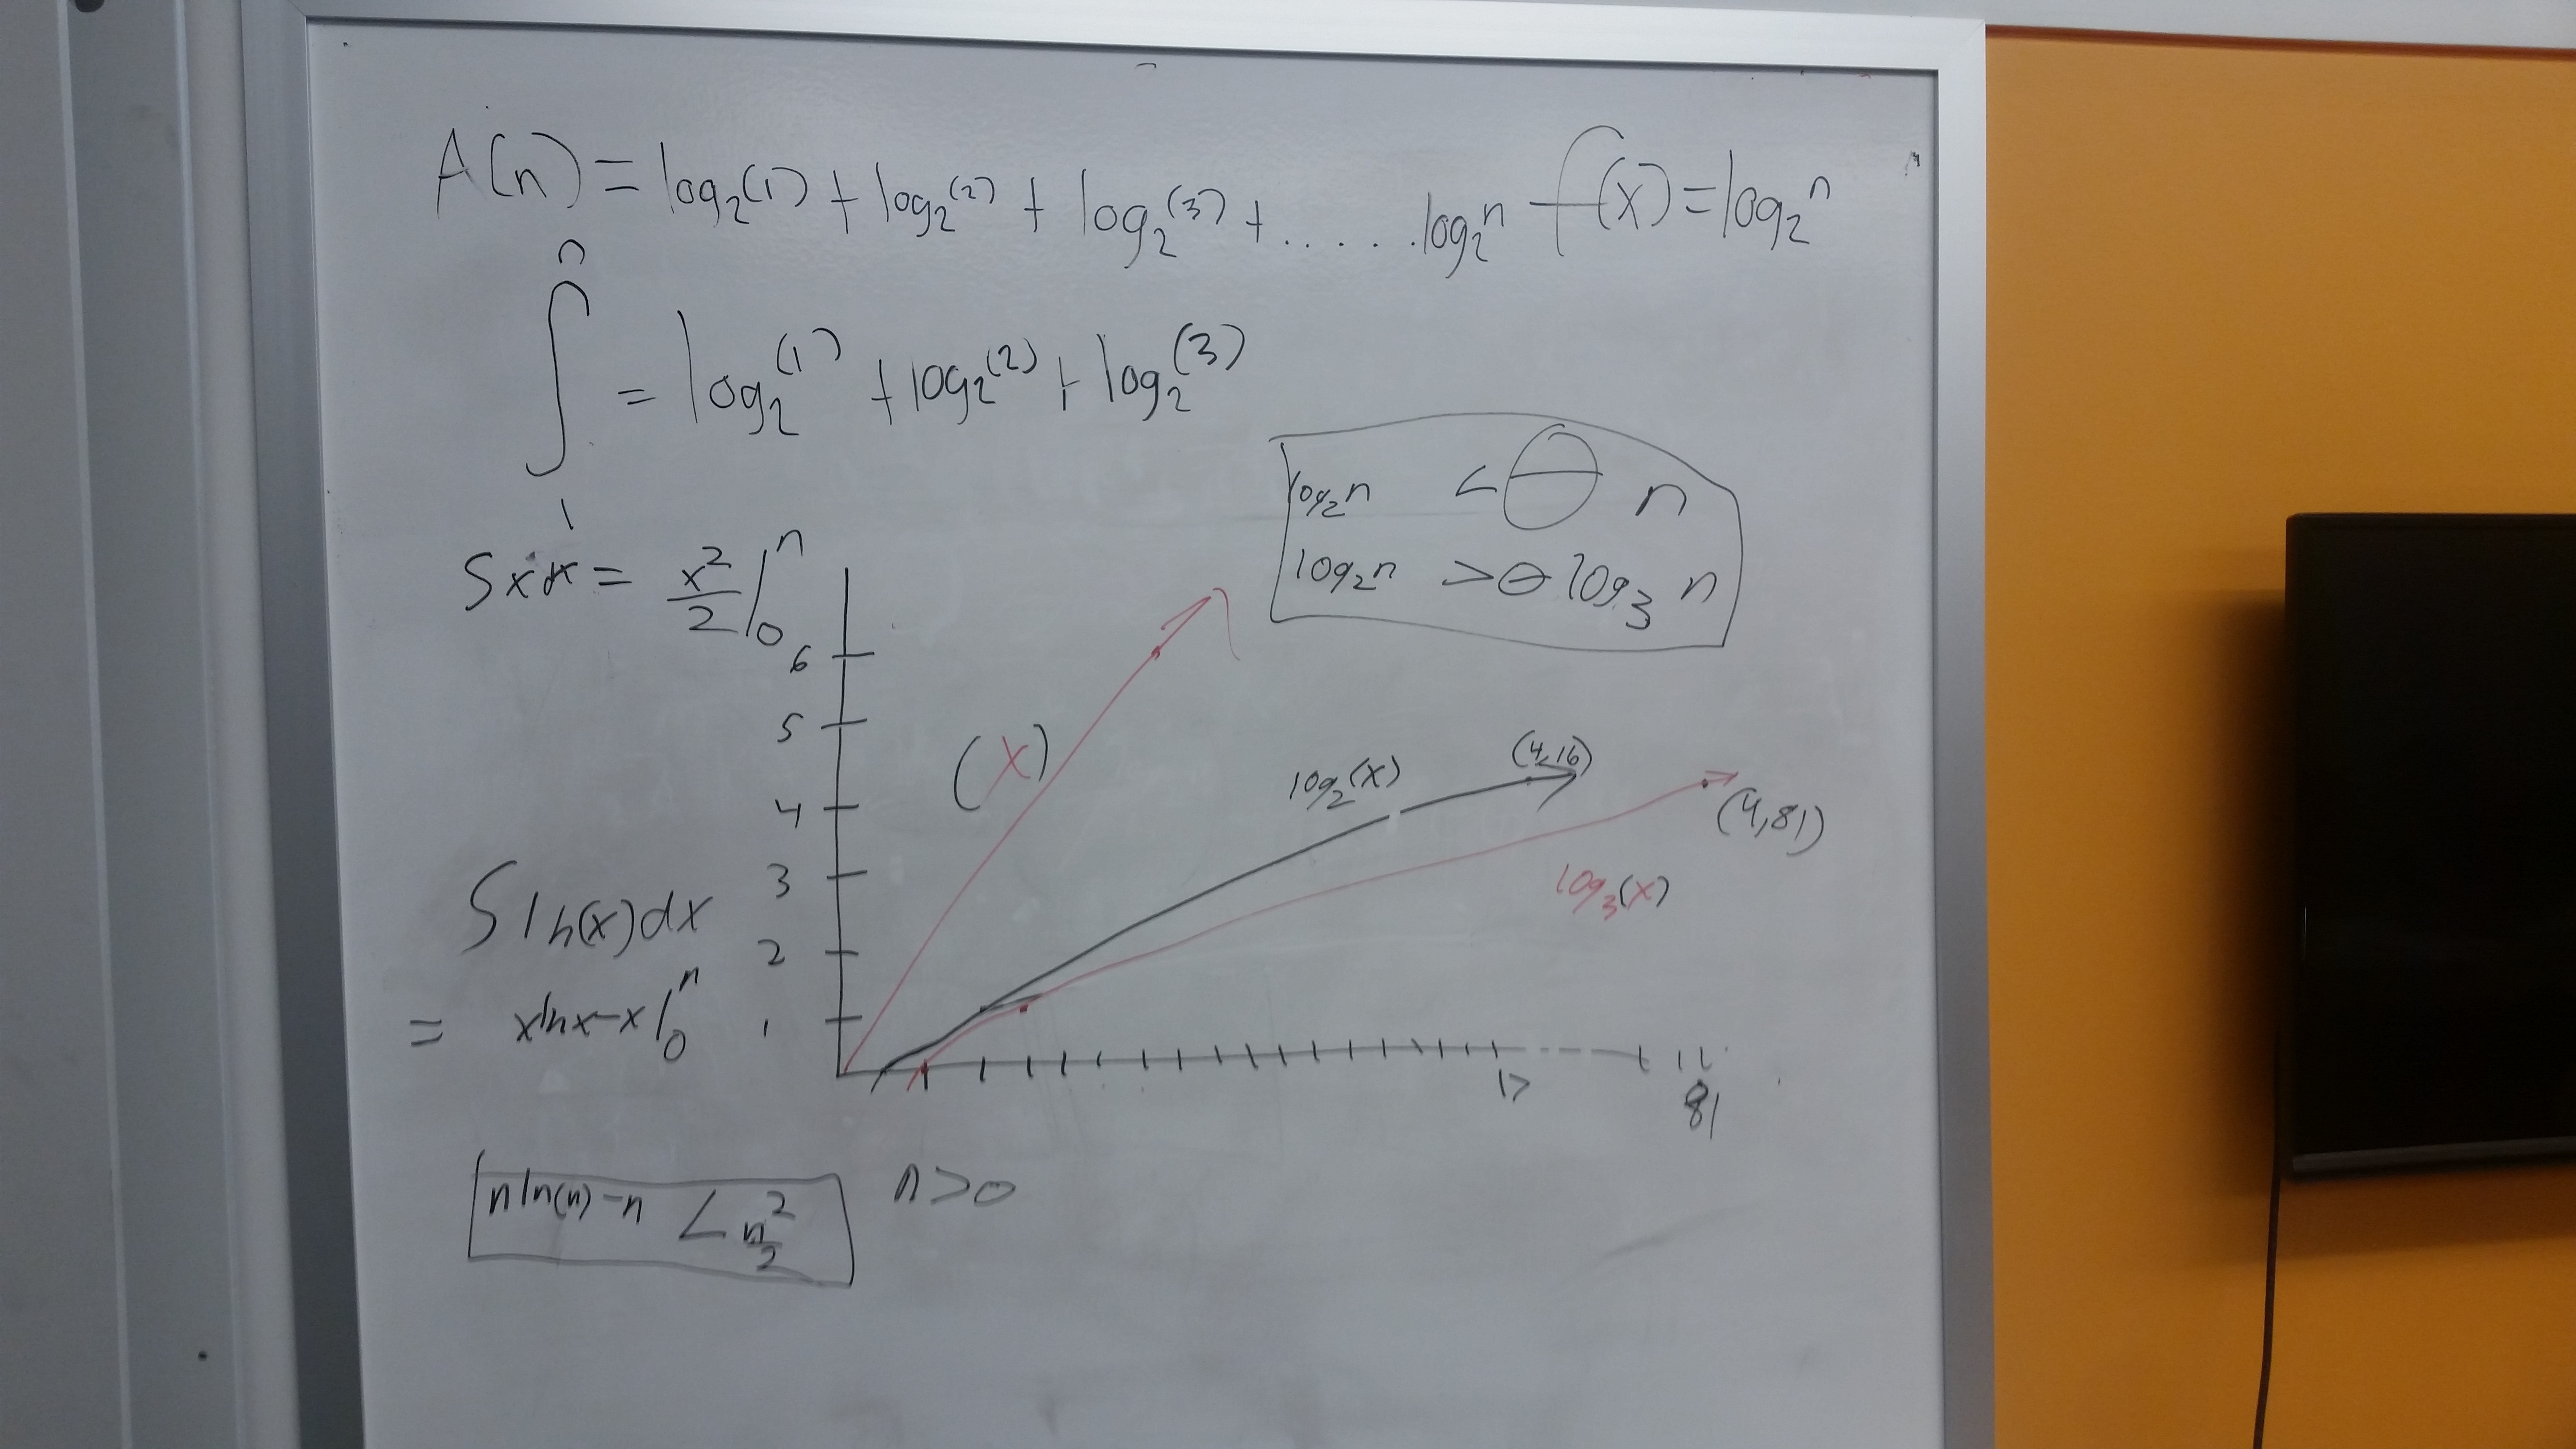 A(n) = log₂(1) + log₂(2) + log₂(3) + ...... log₂n f(x) = log₂n
n
∫ = log₂(1) + log₂(2) + log₂(3)
1
log₂n < Θ n
log₂n > Θ log₃ n
Sxdx = x²/2 |₀ⁿ
6
5
4
3
2
1
(X)
log₂(x)
(4,16)
(4,81)
log₃(x)
S ln(x)dx
= xlnx-x |₀ⁿ
17
81
n ln(n) - n < n²/2
n>0